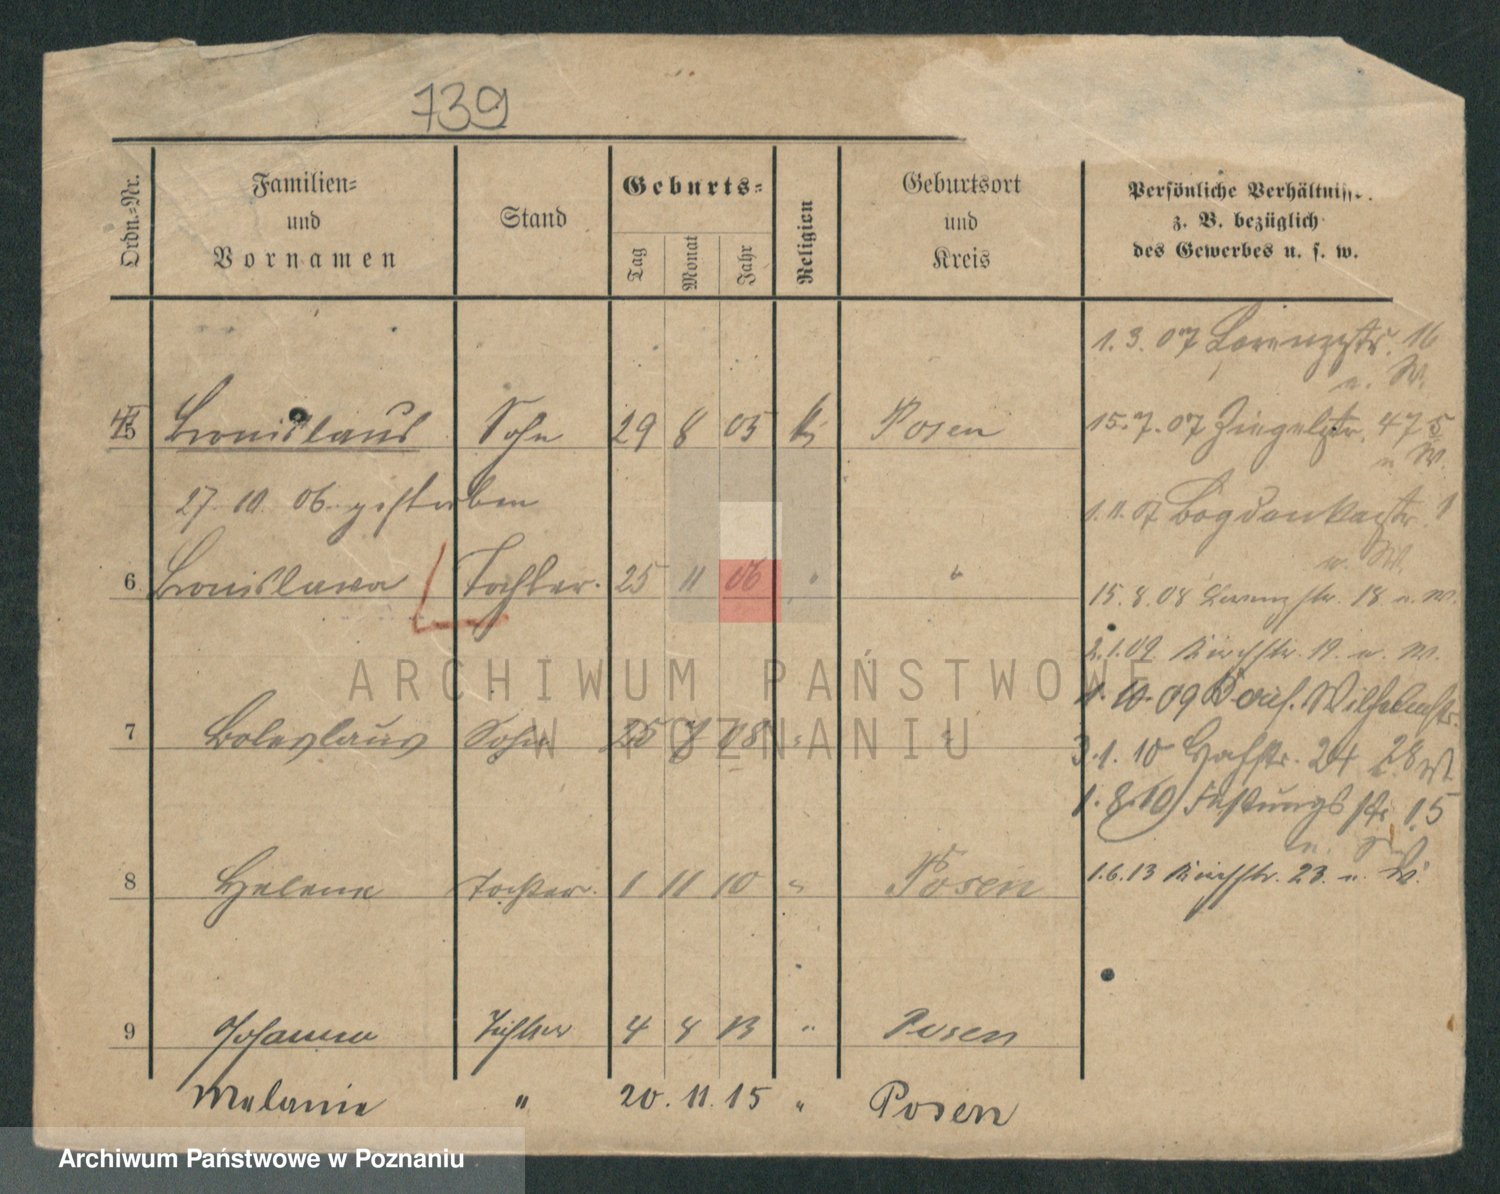 739
Ordn.=Nr.
Familien=
und
Vornamen
Stand
Geburts=
Tag
Monat
Jahr
Religion
Geburtsort
und
Kreis
Persönliche Verhältniss
z. B. bezüglich
des Gewerbes u. s. w.
1. 3. 07 Lorenzstr. 16
u. W.
5 Bronislaus Sohn 29 8 05 k Posen
15. 7. 07 Ziegelstr. 47
u W.
27. 10. 06. gestorben
1. 11. 07 Bogdankastr. 1
u. W.
6 Bronislawa Tochter. 25 11 06 " "
15. 8. 08 Lorenzstr. 18 u. W.
2. 1. 09 Kirchstr. 19. u. W.
1. 10. 09 Wilhelmstr.
7 Boleslaus Sohn 25 7 08 " "
3. 1. 10 24
1. 8. 10 Festungsstr 15
u.
8 Helene Tochter. 1 11 10 " Posen
1. 6. 13 Kirchstr. 23. u. W.
9 Johanna Tochter 4 4 13 " Posen
Melanie " 20. 11. 15 " Posen
ARCHIWUM PAŃSTWOWE
W POZNANIU
Archiwum Państwowe w Poznaniu